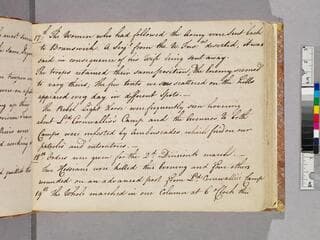 17th The Women who had followed the Army were sent back
to Brunswick. A Serjt from the 16 Inf deserted, it was
said in consequence of his Wife being sent away.
The troops retained their same position, the Enemy seemed
to vary theirs, the few tents we saw scattered on the Hills
appeared every day in different Spots.
The Rebel Light Horse were frequently seen hovering
about Ld Cornwallis's Camp and the Avenues to both
Camps were infested by Ambuscades which fired on our
patroles and videttes.
18th Orders were given for the 2d Division's march.
Two Hessians were killed this Evening and four others
wounded on an advanced post from Ld Cornwallis's Camp
19th The Whole marched in one Column at 6 o'Clock this